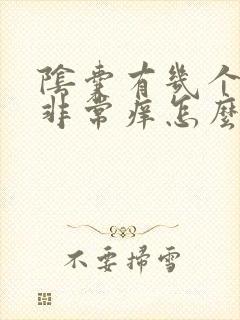 陰囊有幾个
非常痒怎麼
不要掃雪